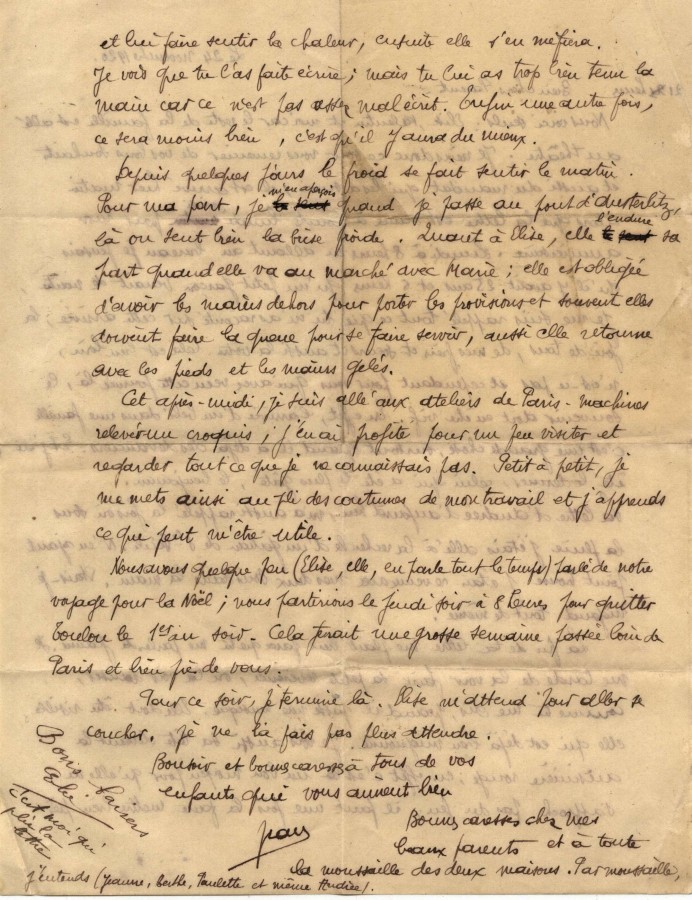 et lui faire sentir la chaleur, ensuite elle s'en méfiera.
Je vois que tu l'as faite écrire ; mais tu lui as trop bien tenu la
main car ce n'est pas assez mal écrit. Enfin une autre fois,
ce sera moins bien, c'est qu'il y aura du mieux.
Depuis quelques jours le froid se fait sentir le matin.
Pour ma part, je m'en aperçois quand je passe au pont d'Austerlitz,
là on sent bien la bise froide. Quant à Elise, elle l'endure sa
part quand elle va au marché avec Marie ; elle est obligée
d'avoir les mains dehors pour porter les provisions et souvent elles
doivent faire la queue pour se faire servir, aussi elle retourne
avec les pieds et les mains gelés.
Cet après-midi, je suis allé aux ateliers de Paris-machines
relever un croquis ; j'en ai profité pour un peu visiter et
regarder tout ce que je ne connaissais pas. Petit à petit, je
me mets ainsi au pli des coutumes de mon travail et j'apprends
ce qui peut m'être utile.
Nous avons quelque peu (Elise, elle, en parle tout le temps) parlé de notre
voyage pour la Noël ; nous partirions le jeudi soir à 8 heures pour quitter
Toulon le 1er au soir. Cela ferait une grosse semaine passée loin de
Paris et bien près de vous.
Pour ce soir, je termine là. Elise m'attend pour aller se
coucher, je ne la fais pas plus attendre.
Bonsoir et bonnes caresses à tous de vos
enfants qui vous aiment bien
Bons baisers
c'est moi qui
plie la
lettre
Bonnes caresses chez mes
beaux parents et à toute
la moussaille des deux maisons. Par moussaille,
j'entends (Jeanne, Berthe, Paulette et même Andrée).